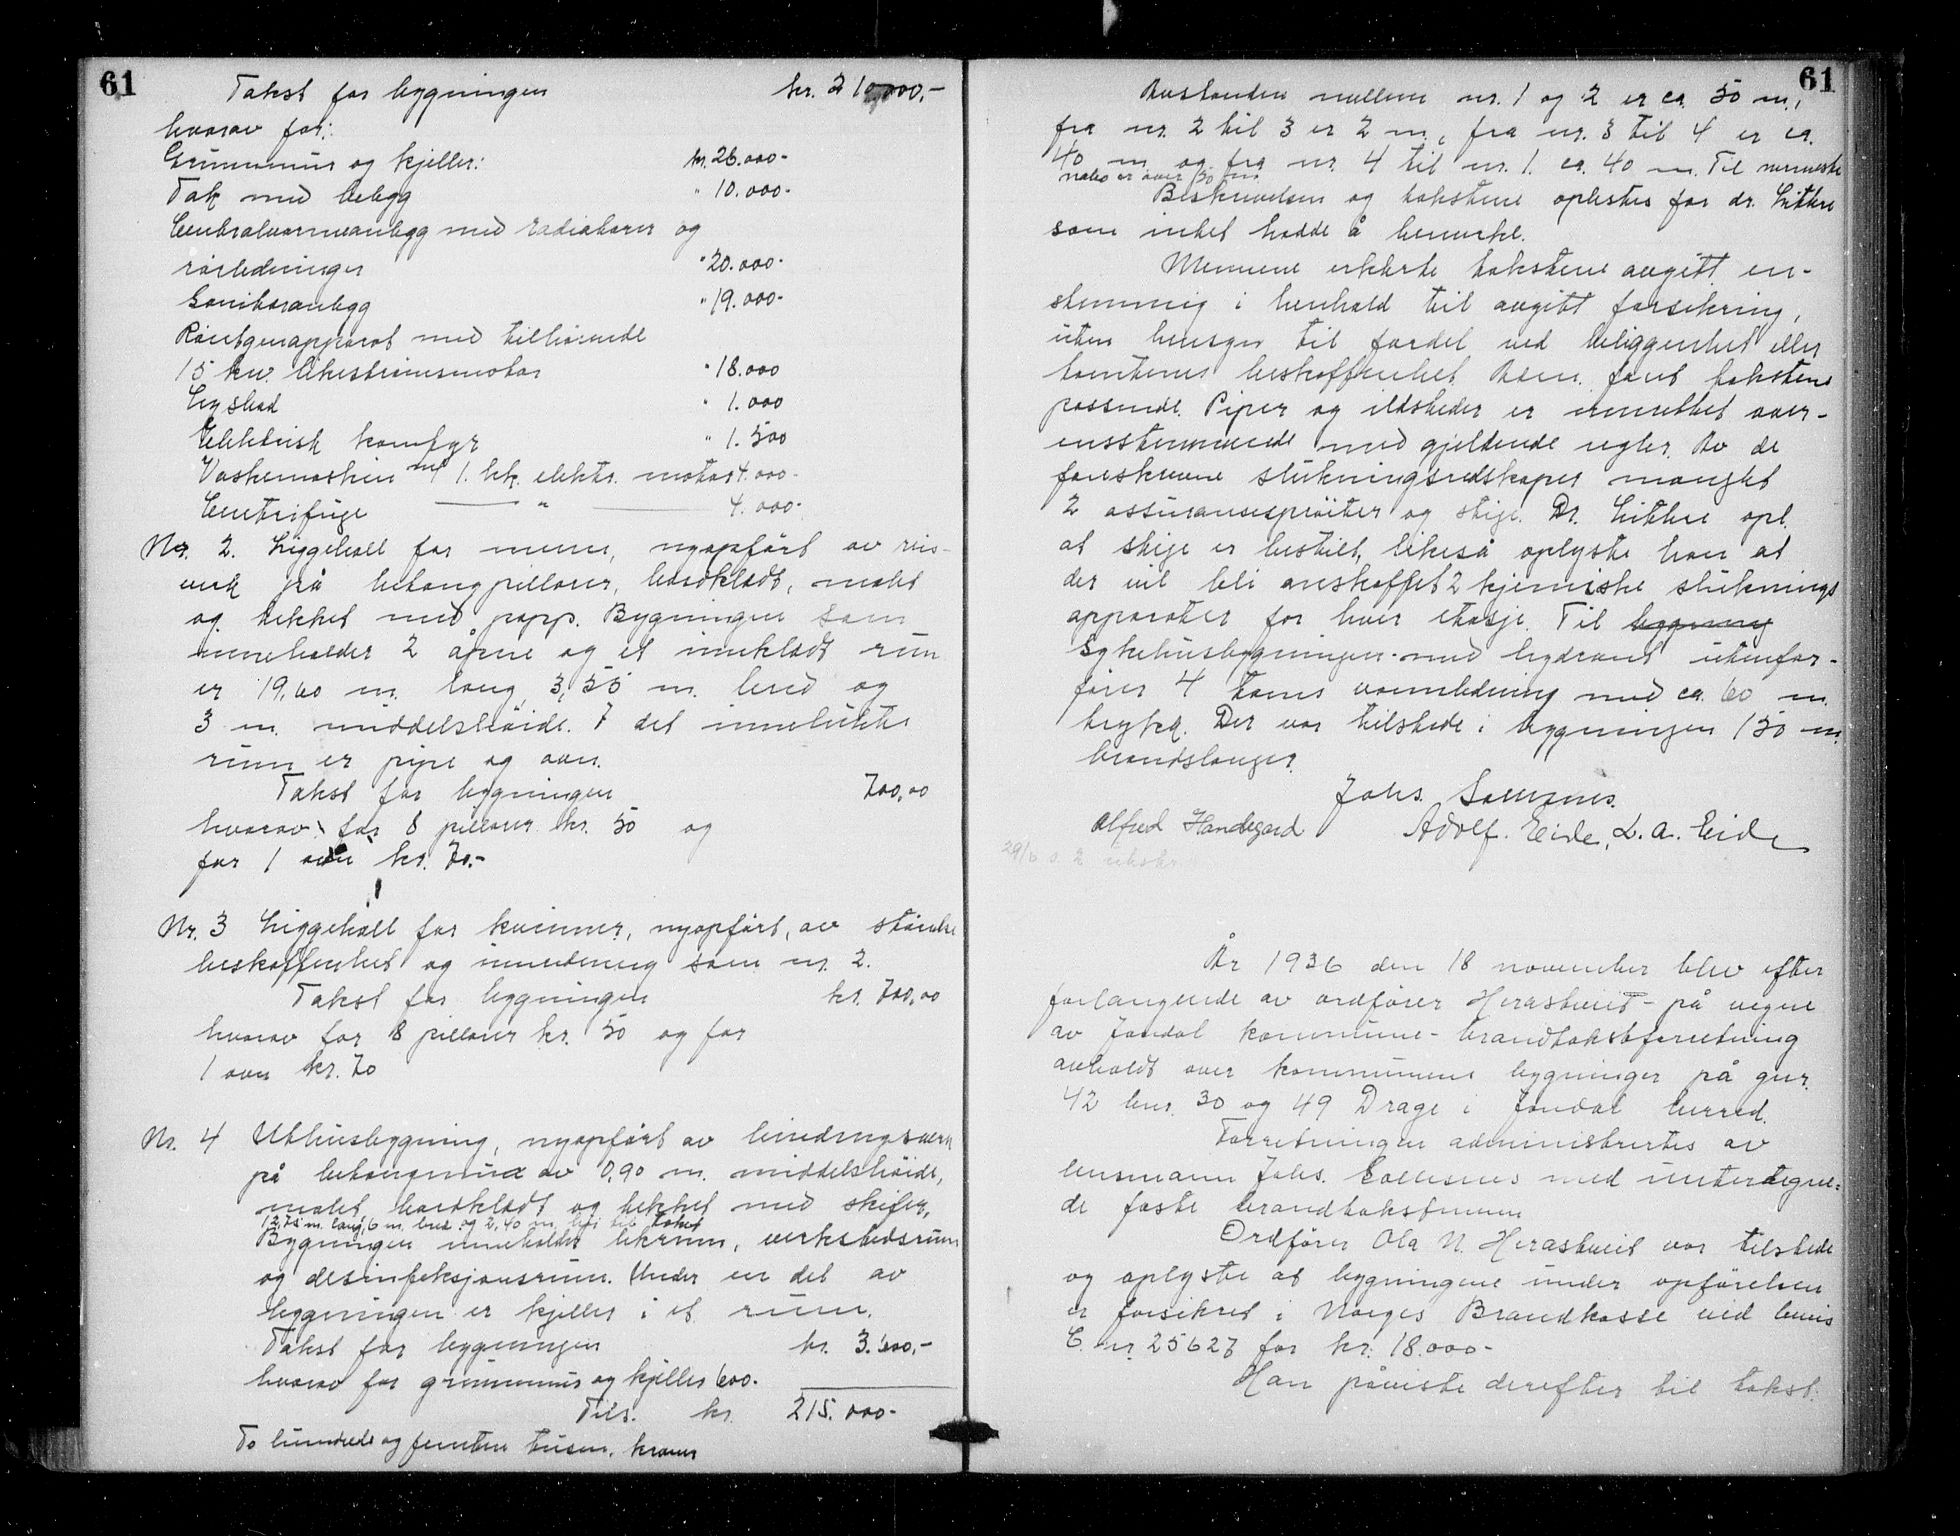 61
Takst for bygningen kr. 210.000,-
hvorav for:
Grunnmur og kjeller: kr. 26.000-
Tak med belegg " 10.000-
Centralvarmeanlegg med radiatorer og
rørledninger " 20.000-
Sanitæranlegg " 19.000-
Røntgenapparat med tilhørende
15 kw. likestrømsmotor " 18.000
Lysbad " 1.000
Elektrisk komfyr " 1.500
Vaskemaskin m/ 1. hk. elektr. motor 4.000-
Centrifuge — " — 4.000-
Nr. 2. Liggehall for menn, nyopført av reis-
verk på betongpillarer, bordklædt, malet
og tekket med papp. Bygningen som
inneholder 2 åpne og et innklædt rum
er 19,60 m. lang, 3,35 m. bred og
3 m. middelshøide. I det innelukte
rum er pipe og ovn.
Takst for bygningen 700,00
hvorav for 8 pillarer kr. 50 og
for 1 ovn kr. 70.-
Nr. 3 Liggehall for kvinner, nyopført, av størrelse
beskaffenhet og innredning som nr. 2.
Takst for bygningen kr. 700,00
hvorav for 8 pillarer kr. 50 og for
1 ovn kr. 70
Nr. 4 Uthusbygning, nyopført av bindingsverk
på betongmur av 0,90 m. middelshøide,
malet, bordklædt og tekket med skifer,
12,75 m. lang, 6 m. bred og 2,40 m. høi til taket
Bygningen inneholder likrum, verkstedsrum
og desinfeksjonsrum. Under en del av
bygningen er kjeller i et rum.
Takst for bygningen kr. 3.600,-
hvorav for grunnmur og kjeller 600.
Tils. kr. 215.000-
To hundrede og femten tusen, kroner
61
Avstanden mellem nr. 1 og 2 er ca. 50 m.,
fra nr. 2 til 3 er 2 m., fra nr. 3 til 4 er ca.
40 m. og fra nr. 4 til nr. 1. ca. 40 m. Til nærmeste
nabo er over 50 m.
Beskrivelsen og takstene oplestes for dr. Lithre
som intet hadde å bemerke.
Mennene erklærte takstene avgitt en-
stemmig i henhold til avgitt forsikring,
uten hensyn til fordel ved beliggenhet eller
tomtenes beskaffenhet. Adm. fant takstene
passende. Piper og ildsteder er innrettet over-
ensstemmende med gjeldende regler. Av de
foreskrevne slukningsredskaper manglet
2 assuransesprøiter og stige. Dr. Lithre opl.
at stige er bestilt, likeså oplyste han at
der vil bli anskaffet 2 kjemiske sluknings
apparater for hver etasje. Til bygning
Sykehusbygningen med hydrant utenfor-
fører 4 toms vannledning med ca. 60 m.
trykk. Der var tilstede i bygningen 150 m.
brandslanger.
Johs. Solesnes.
Alfred Handegard Adolf. Eide, L. A. Eide
År 1936 den 18 november blev efter
forlangende av ordfører Herastveit - på vegne
av Jondal kommune - brandtakstforretning
avholdt over kommunens bygninger på gnr.
42 bnr. 30 og 49 Drage i Jondal herred.
Forretningen administrertes av
lensmann Johs. Solesnes med undertegne-
de faste brandtakstmenn
Ordfører Ola N. Herastveit var tilstede
og oplyste at bygningene under opførelsen
er forsikret i Norges Brandkasse ved bevis
C. nr. 25627 for kr. 18.000-
Han påviste derefter til takst.